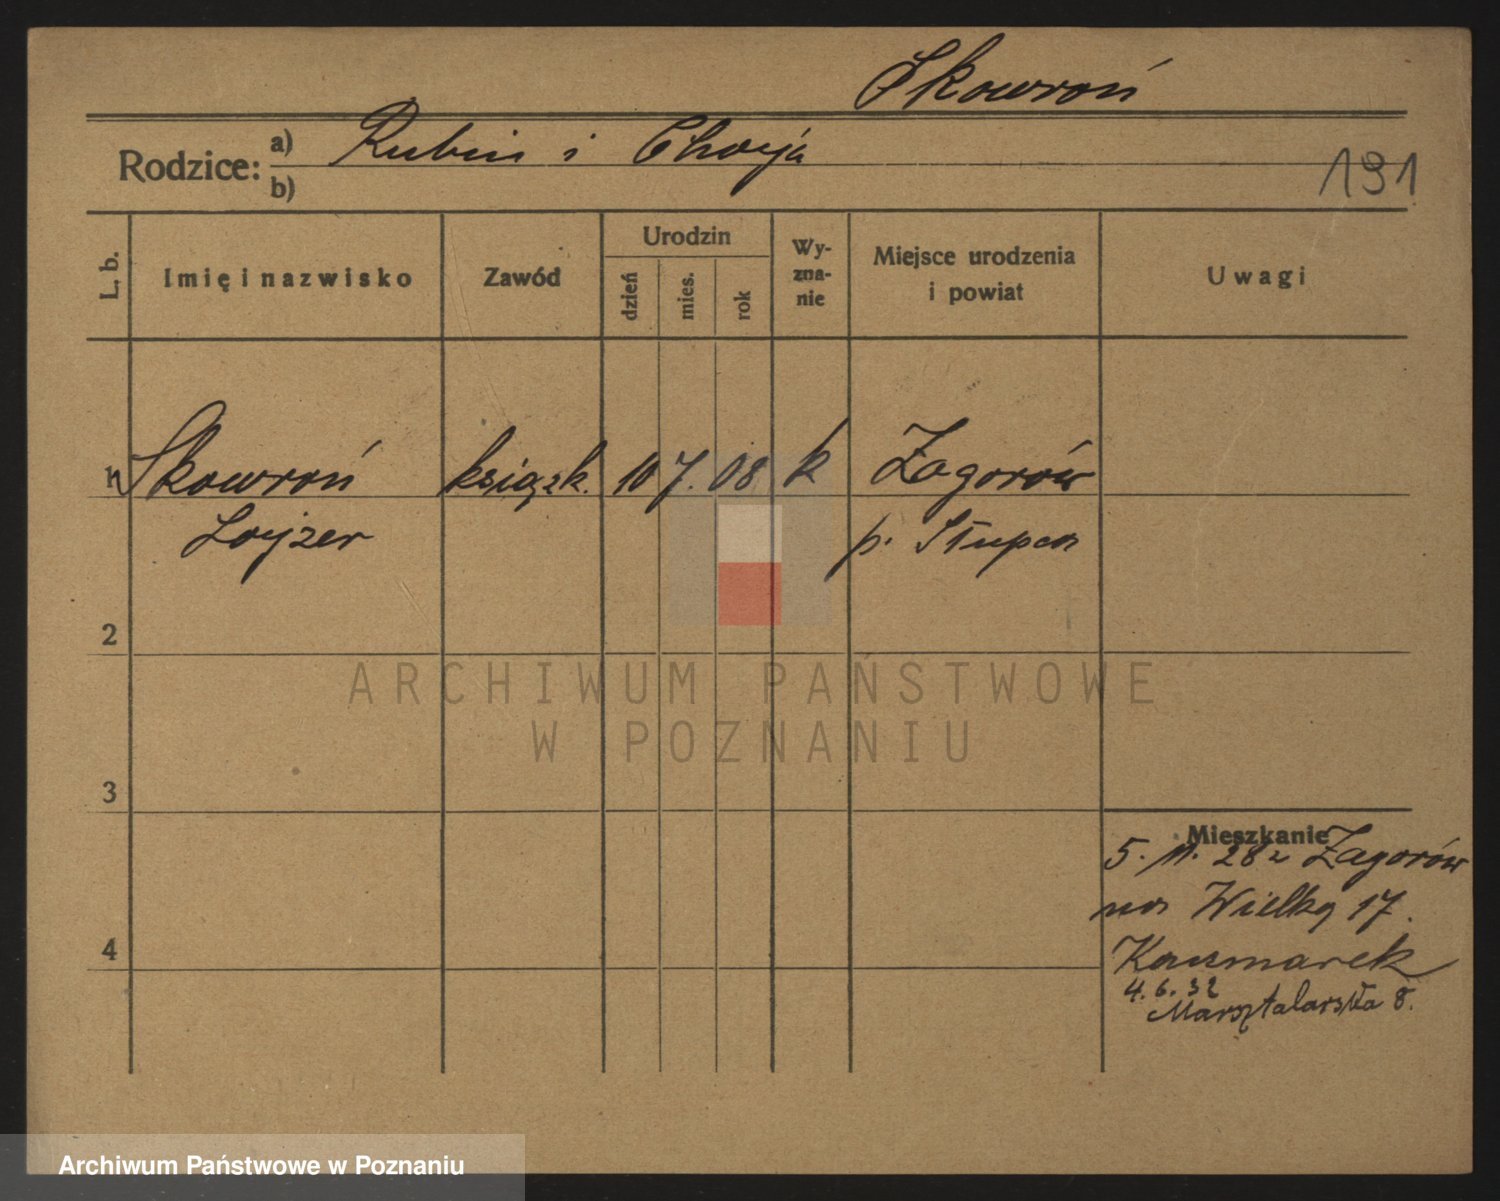 Skowroń
Rodzice: a) Rubin i Chaja
b)
191
L. b.
Imię i nazwisko
Zawód
Urodzin
dzień
mies.
rok
Wy-
zna-
nie
Miejsce urodzenia
i powiat
Uwagi
1 Skowroń książk. 10 7. 08 k Zagorów
Lajzer p. Słupca
2
3
4
Mieszkanie
5. 11. 28 z Zagorów
na Wielką 17.
Kaczmarek
4. 6. 32
Marsztalarska 8.
ARCHIWUM PAŃSTWOWE
W POZNANIU
Archiwum Państwowe w Poznaniu